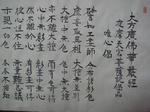 大方廣佛華嚴經
夜摩天宮菩薩說偈品
唯心偈
譬如工畫師 分布諸彩色
虛妄取異相 大種無差別
大種中無色 色中無大種
亦不離大種 而有色可得
心中無彩畫 彩畫中無心
然不離於心 有彩畫可得
彼心恒不住 無量難思議
示現一切色 各各不相知